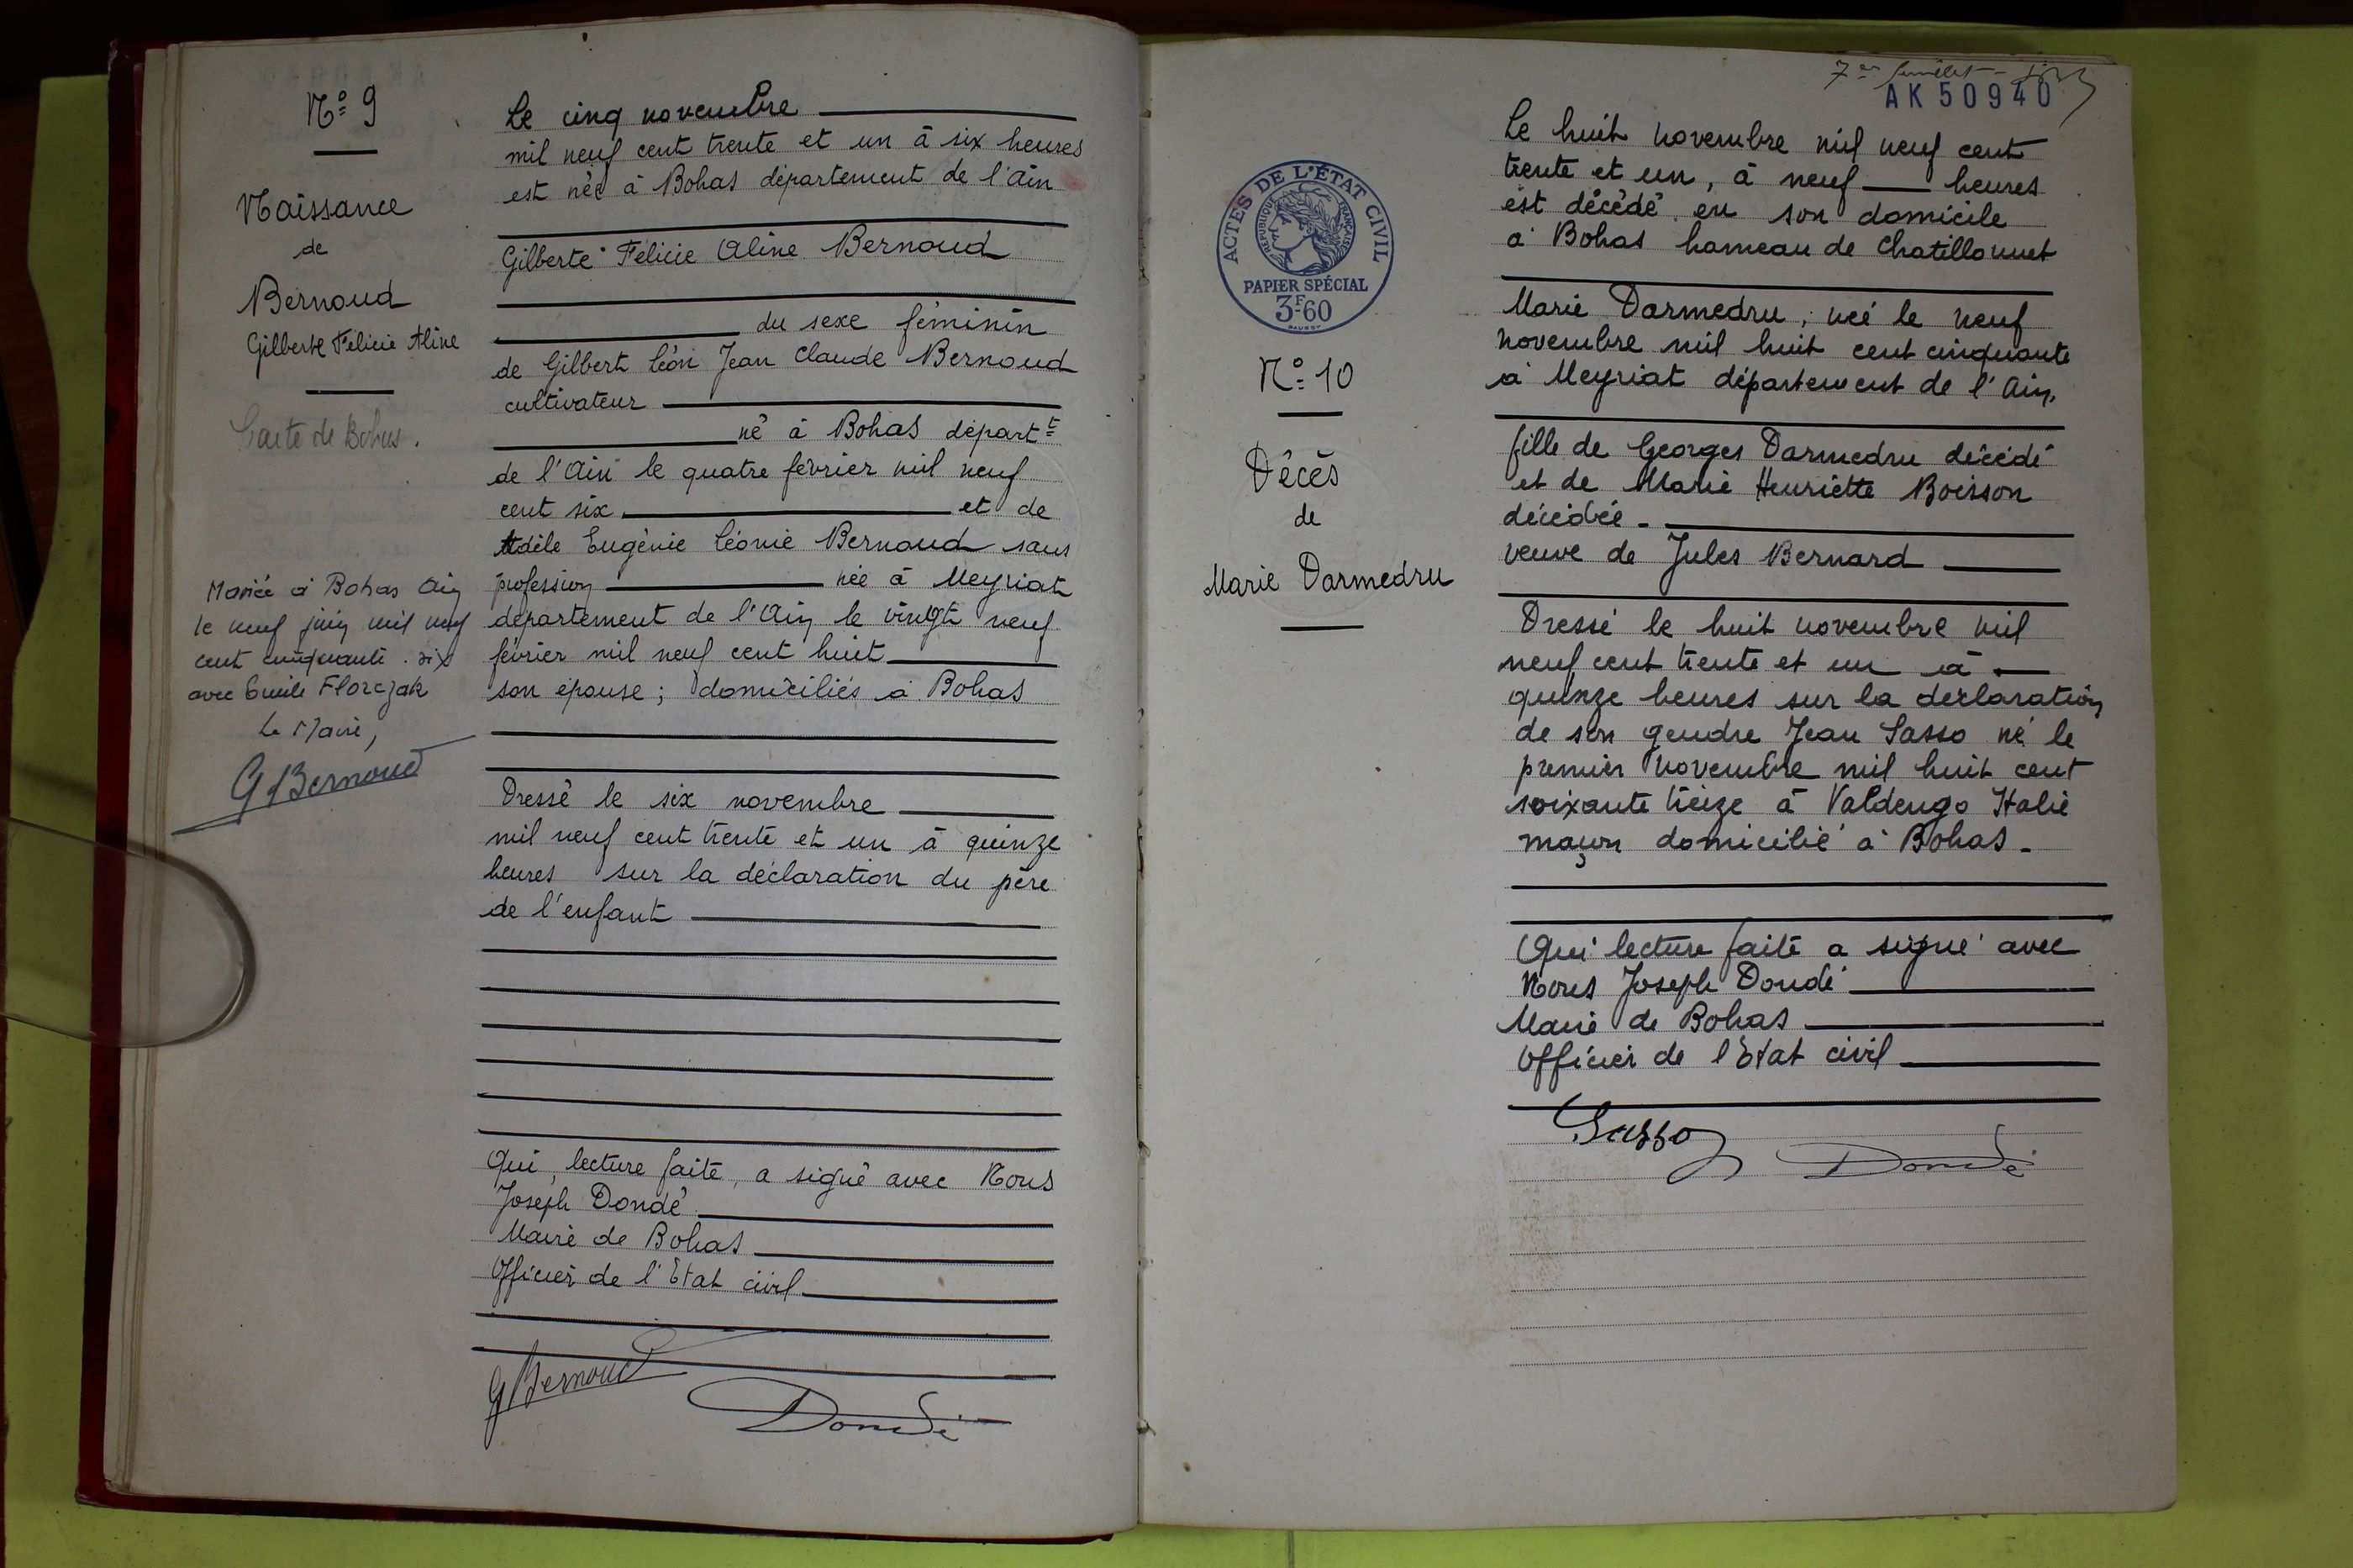 N° 9
Naissance
de
Bernoud
Gilberte Félicie Aline
Mariée à Bohas Ain
le neuf juin mil neuf
cent cinquante-six
avec Emile Florczak
Le Maire,
GBernoud
Le cinq novembre
mil neuf cent trente et un à six heures
est née à Bohas département de l'Ain
Gilberte Félicie Aline Bernoud
du sexe féminin
de Gilbert Léon Jean Claude Bernoud
cultivateur
né à Bohas départt
de l'Ain le quatre février mil neuf
cent six et de
Adèle Eugénie Léonie Bernoud sans
profession née à Meyriat
département de l'Ain le vingt neuf
février mil neuf cent huit
son épouse ; domiciliés à Bohas
Dressé le six novembre
mil neuf cent trente et un à quinze
heures sur la déclaration du père
de l'enfant
Qui, lecture faite, a signé avec Nous
Joseph Dondé
Maire de Bohas
Officier de l'Etat civil
GBernoud
Dondé
7e feuillet
AK 50940
ACTES DE L'ÉTAT CIVIL
RÉPUBLIQUE FRANÇAISE
PAPIER SPÉCIAL
3F60
N° 10
Décès
de
Marie Darmedru
Le huit novembre mil neuf cent
trente et un, à neuf heures
est décédé en son domicile
à Bohas hameau de Chatillonnet
Marie Darmedru, née le neuf
novembre mil huit cent cinquante
à Meyriat département de l'Ain,
fille de Georges Darmedru décédé
et de Marie Henriette Boisson
décédée -
veuve de Jules Bernard
Dressé le huit novembre mil
neuf cent trente et un à
quinze heures sur la déclaration
de son gendre Jean Sasso né le
premier novembre mil huit cent
soixante treize à Valdengo Italie
maçon domicilié à Bohas -
Qui lecture faite a signé avec
Nous Joseph Dondé
Maire de Bohas
Officier de l'Etat civil
Sasso
Dondé